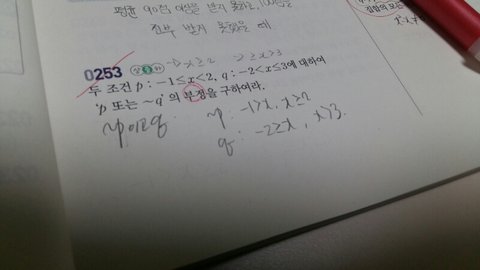 평균 90점 이상을 받지 못하고, 100점을
전부 받지 못했을 때
0253 상중하 -1>x≥2 -2≥x>3
두 조건 p : -1≤x<2, q : -2<x≤3에 대하여
'p 또는 ~q'의 부정을 구하여라.
~p이고 q. ~p : -1>x, x≥2
q : -2≥x, x>3.
집합의 모든